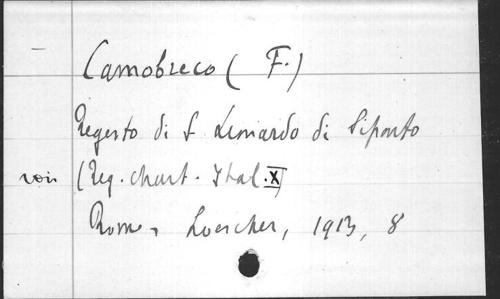 Camobreco ( F.)
Regesto di S Leonardo di Siponto
voir (Reg. chart. Ital. X)
Rome, Loescher, 1913, 8